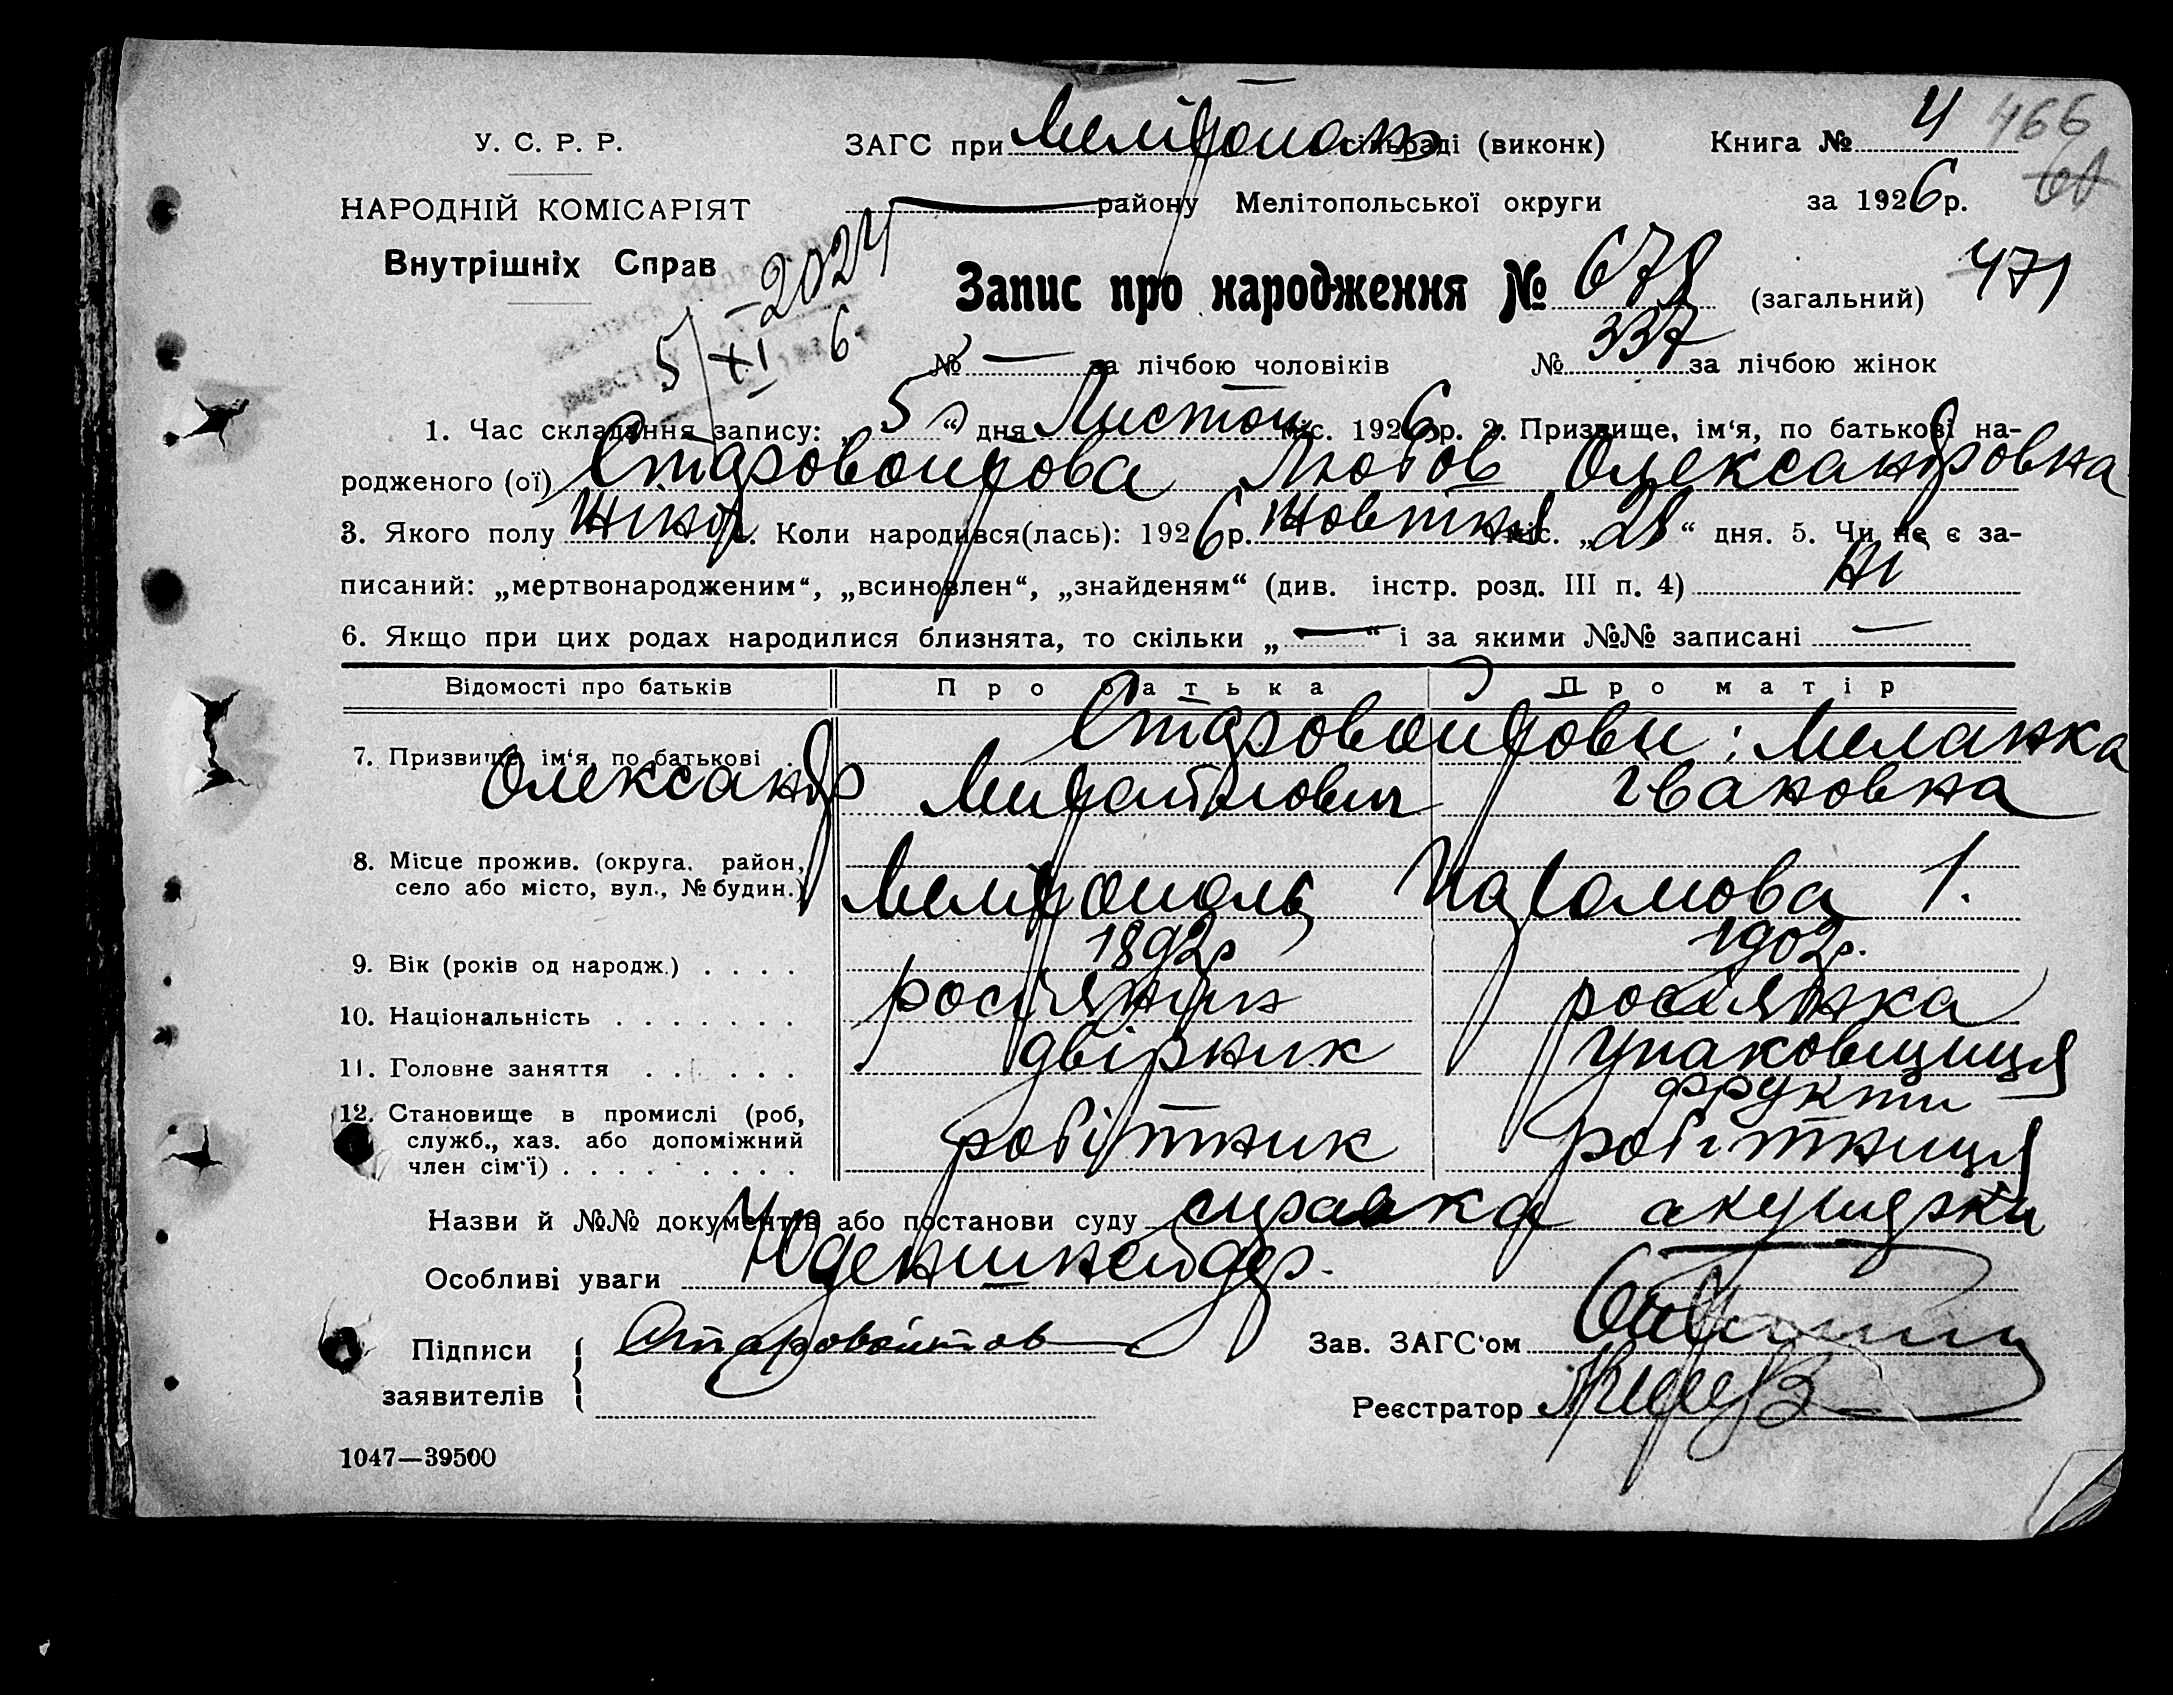 У. С. Р. Р.
НАРОДНІЙ КОМІСАРІЯТ
Внутрішніх Справ
ЗАГС при Мелітополь сільраді (виконк)
Книга № 4 466
району Мелітопольської округи
за 1926 р.
Запис про народження № 678 (загальний) 471
2024
5/XI 6
№ — за лічбою чоловіків № 337 за лічбою жінок
1. Час складання запису: „5“ дня Листоп міс. 1926 р. 2. Призвище, ім‘я, по батькові на-
родженого (ої) Старовойтова Любов Олександровна
3. Якого полу Жіноч. Коли народився(лась): 1926 р. Жовтня міс. „28“ дня. 5. Чи не є за-
писаний: „мертвонародженим“, „всиновлен“, „знайденям“ (див. інстр. розд. III п. 4) Ні
6. Якщо при цих родах народилися близнята, то скільки „—“ і за якими №№ записані —
Відомості про батьків Про батька Про матір
7. Призвище, ім‘я, по батькові Старовойтови: Меланка
Олександр Михайлович Івановна
8. Місце прожив. (округа, район,
село або місто, вул., № будин.) Мелітополь 1.
9. Вік (років од народж.) . . . . 1892р 1902р.
10. Національність . . . . . . . росіянин росіянка
11. Головне заняття . . . . . . двірник упаковщиця
фрукти
12. Становище в промислі (роб,
служб., хаз. або допоміжний
член сім‘ї) . . . . . . . . . робітник робітниця
Назви й №№ документів або постанови суду справка акушерки
Особливі уваги Юденшнейдер.
Підписи
заявителів
Старовойтов
Зав. ЗАГС‘ом
Реєстратор
1047—39500